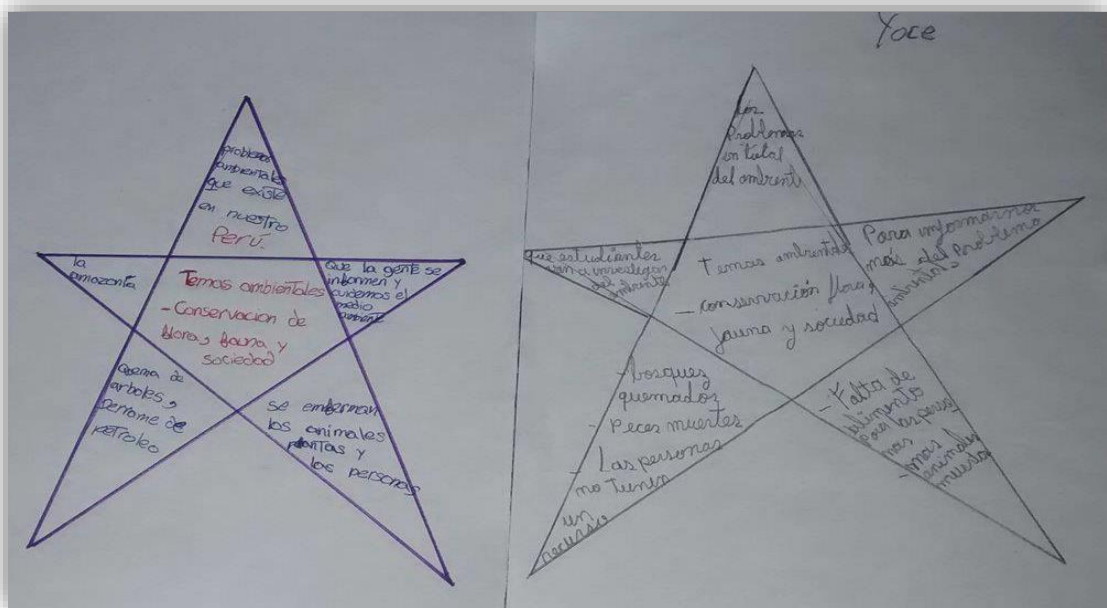 problemas
ambientales
que existe
en nuestro
Perú.
la
amazonía
Temas ambientales
- Conservacion de
flora, fauna y
sociedad
que la gente se
informen y
cuidemos el
medio
ambiente
Quema de
arboles,
derrame de
petroleo
se enferman
los animales
plantas y
las personas
Yoce
los
Problemas
en total
del ambiente
que estudiantes
van a investigar
del
ambiente
Temas ambiental
- conservación flora,
fauna y sociedad
Para informarnos
mas del Problema
ambiental,
- bosquez
quemados
- Peces muertes
- Las personas
no tienen
un
recurso
- Falta de
alimento
para las perso
nas
- mas
animales
muertos